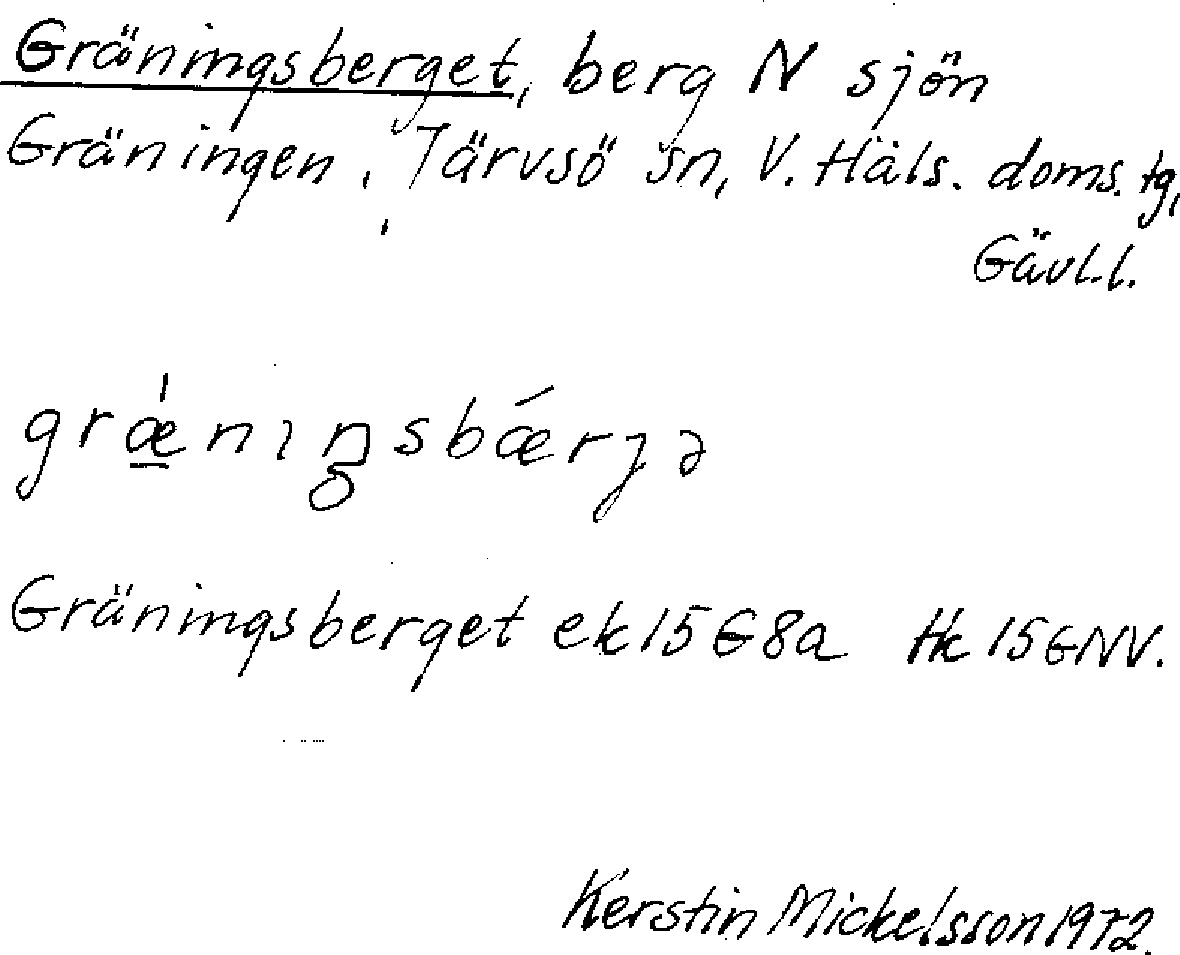 Gräningsberget, berg N sjön
Gräningen, Järvsö sn, V. Häls. doms. tg,
Gävl.l.
grǽ̱nıŋsbǽrȷə
Gräningsberget ek 15G8a Hk 15GNV.
Kerstin Mickelsson 1972.